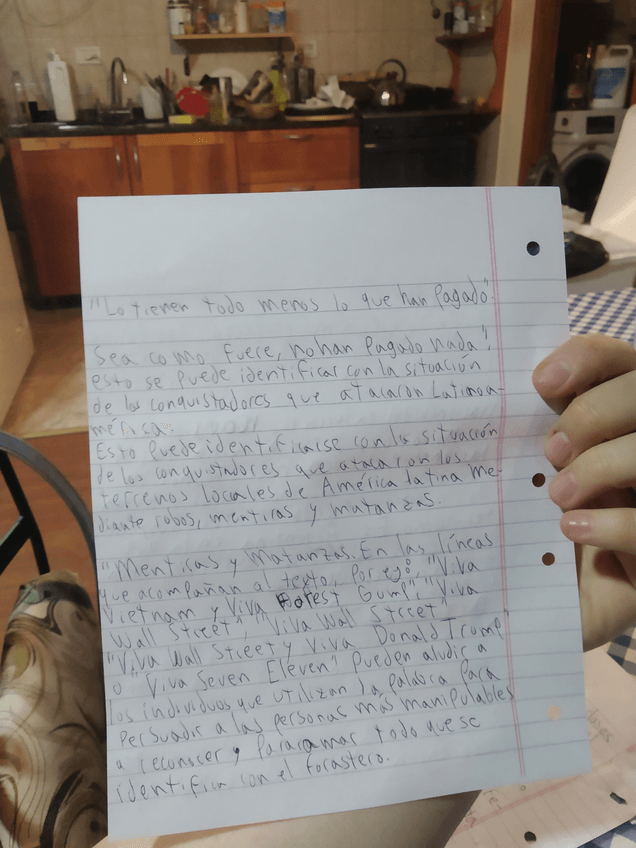 "Lo tienen todo menos lo que han pagado".
Sea como fuere, no han pagado nada",
esto se puede identificar con la situación
de los conquistadores que atacaron Latinoa-
mérica.
Esto puede identificarse con la situación
de los conquistadores que atacaron los
terrenos locales de América latina me-
diante robos, mentiras y matanzas.
"Mentiras y Matanzas. En las líneas
que acompañan al texto, por ej: "Viva
Vietnam y Viva Forest Gump", "Viva
Wall Street", "Viva Wall Street"
"Viva Wall Street y Viva Donald Trump"
o "Viva Seven Eleven" pueden aludir a
los individuos que utilizan la palabra para
persuadir a las personas más manipulables
a reconocer y para amar todo que se
identifica con el forastero.